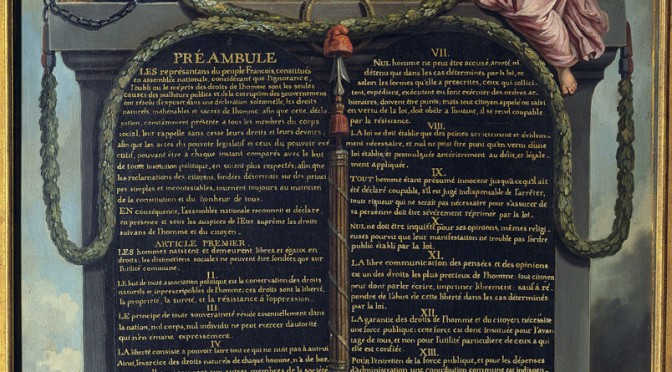 PRÉAMBULE
LES représentans du peuple François, constitués
en assemblée nationale, considérant que l'ignorance,
l'oubli ou le mépris des droits de l'homme sont les seules
causes des malheurs publics et de la corruption des gouvernemens
ont résolu d'exposer dans une déclaration solemnelle, les droits
naturels, inaliénables et sacrés de l'homme; afin que cette décla
ration, constamment présente a tous les membres du corps
social, leur rappelle sans cesse leurs droits et leurs devoirs;
afin que les actes du pouvoir législatif et ceux du pouvoir exé
cutif, pouvant être a chaque instant comparés avec le but
de toute institution politique, en soient plus respectés; afin que
les reclamations des citoyens, fondées désormais sur des princi
pes simples et incontestables, tournent toujours au maintien
de la constitution et du bonheur de tous.
EN conséquence, l'assemblée nationale reconnoit et déclare,
en presence et sous les auspices de l'Etre suprême les droits
suivans de l'homme et du citoyen.
ARTICLE PREMIER.
LES hommes naissent et demeurent libres et égaux en
droits; les distinctions sociales ne peuvent être fondées que sur
l'utilité commune.
II.
LE but de toute association politique est la conservation des droits
naturels et imprescriptibles de l'homme; ces droits sont la liberté,
la propriété, la sureté, et la résistance à l'oppression.
III.
LE principe de toute souveraineté réside essentiellement dans
la nation, nul corps, nul individu ne peut exercer d'autorité
qui n'en émane expressement.
IV.
LA liberté consiste a pouvoir faire tout ce qui ne nuit pas à autrui
Ainsi, l'exercice des droits naturels de chaque homme, n'a de bor
aux autres membres de la société
VII.
NUL homme ne peut être accusé, arreté, ni
détenu que dans les cas déterminés par la loi, et
selon les formes qu'elle a prescrites, ceux qui sollici
tent, expédient, exécutent ou font exécuter des ordres ar
bitraires, doivent être punis; mais tout citoyen appelé ou saisi
en vertu de la loi, doit obéir a l'instant, il se rend coupable
par la résistance.
VIII.
LA loi ne doit établir que des peines strictement et évidem
ment nécessaire, et nul ne peut être puni qu'en vertu d'une
loi établie et promulguée antérieurement au délit, et légale
ment appliquée.
IX.
TOUT homme étant présumé innocent jusqu'a ce qu'il ait
été déclaré coupable, s'il est jugé indispensable de l'arrêter,
toute rigueur qui ne serait pas nécessaire pour s'assurer de
sa personne doit être sévèrement réprimée par la loi.
X.
NUL ne doit être inquiété pour ses opinions, mêmes religi
euses pourvu que leur manifestation ne trouble pas l'ordre
public établi par la loi.
XI.
LA libre communication des pensées et des opinions
est un des droits les plus precieux de l'homme; tout citoyen
peut dont parler écrire, imprimer librement: sauf a ré
pondre de l'abus de cette liberté dans les cas déterminés
par la loi.
XII.
LA garantie des droits de l'homme et du citoyen nécessite
une force publique; cette force est donc instituée pour l'avan
tage de tous, et non pour l'utilité particuliere de ceux a qui
elle est confiée.
XIII.
Pour l'entretien de la force publique, et pour les dépenses
d'administration, une contribution commune est indispen